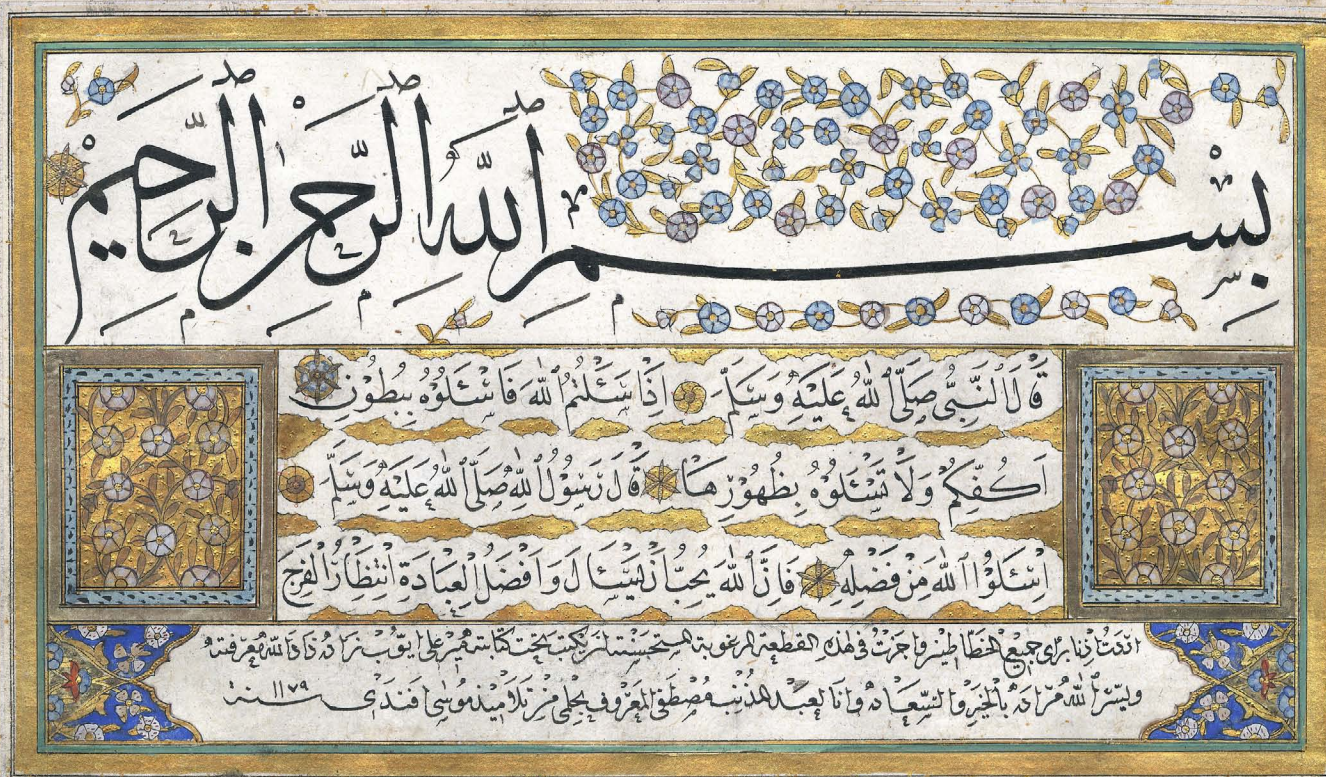 بِسْمِ ٱللَّهِ ٱلرَّحْمٰنِ ٱلرَّحِيمِ
قَالَ ٱلنَّبِىُّ صَلَّى ٱللّٰهُ عَلَيْهِ وَسَلَّمَ اِذَا سَئَلْتُمُ ٱللّٰهَ فَاسْئَلُوْهُ بِبُطُوْنِ
اَكُفِّكُمْ وَلَا تَسْئَلُوْهُ بِظُهُوْرِهَا قَالَ رَسُوْلُ ٱللّٰهِ صَلَّى ٱللّٰهُ عَلَيْهِ وَسَلَّمَ
اِسْئَلُوْا ٱللّٰهَ مِنْ فَضْلِهِ فَاِنَّ ٱللّٰهَ يُحِبُّ اَنْ يُسْئَالَ وَاَفْضَلُ ٱلْعِبَادَةِ اِنْتِظَارُ ٱلْفَرَجِ
جميع الخطاطين واجزت فى هذه القطعة المرغوبة المستحسنة لمن كتب تحت كتابته على ايوب زاده زاد الله معرفته
ويسر الله مراده بالخير والسعاده وانا العبد المذنب مصطفى المعروف بحلمى من تلاميذ موسى افندى سنة ١١٧٩